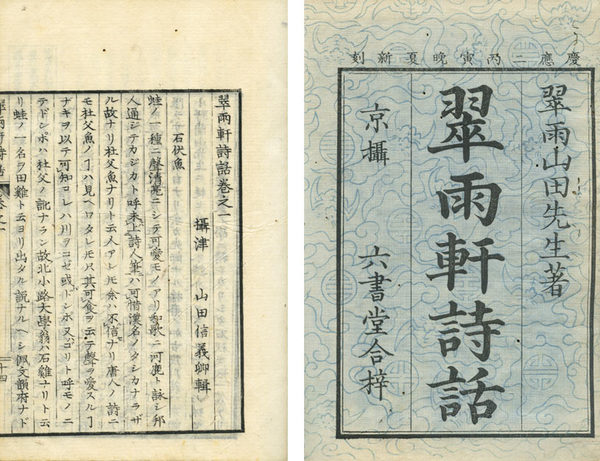 慶應二丙寅晩夏新刻
翠雨山田先生著
翠雨軒詩話
京攝 六書堂合梓
翠雨軒詩話巻之一
攝津 山田信義卿輯
石伏魚
蛙ノ一種ニ聲清亮ニシテ可愛モノアリ和歌ニ河鹿ト詠シ邦
人通シテカジカト呼来上詩人藁ハ可惜漢名ノタシカナラザ
ル故ナリ杜父魚ナリト云人アレモ余ハ不信ナリ唐人ノ詩ニ
モ杜父魚ノヿハ見ヘワタレモ只其可食ヲ云テ聲ヲ愛スルヿ
ナキヲ以テ可知コレハ川ヲコゼ或ドンボ又ゴリト呼モノニ
テドンポハ杜父ノ訛ナラン故北小路大學翁ハ石雞ナリト云
リ蛙ノ一名ヲ田雞ト云ヨリ出タル説ナルヘシ佩文韻府ナド